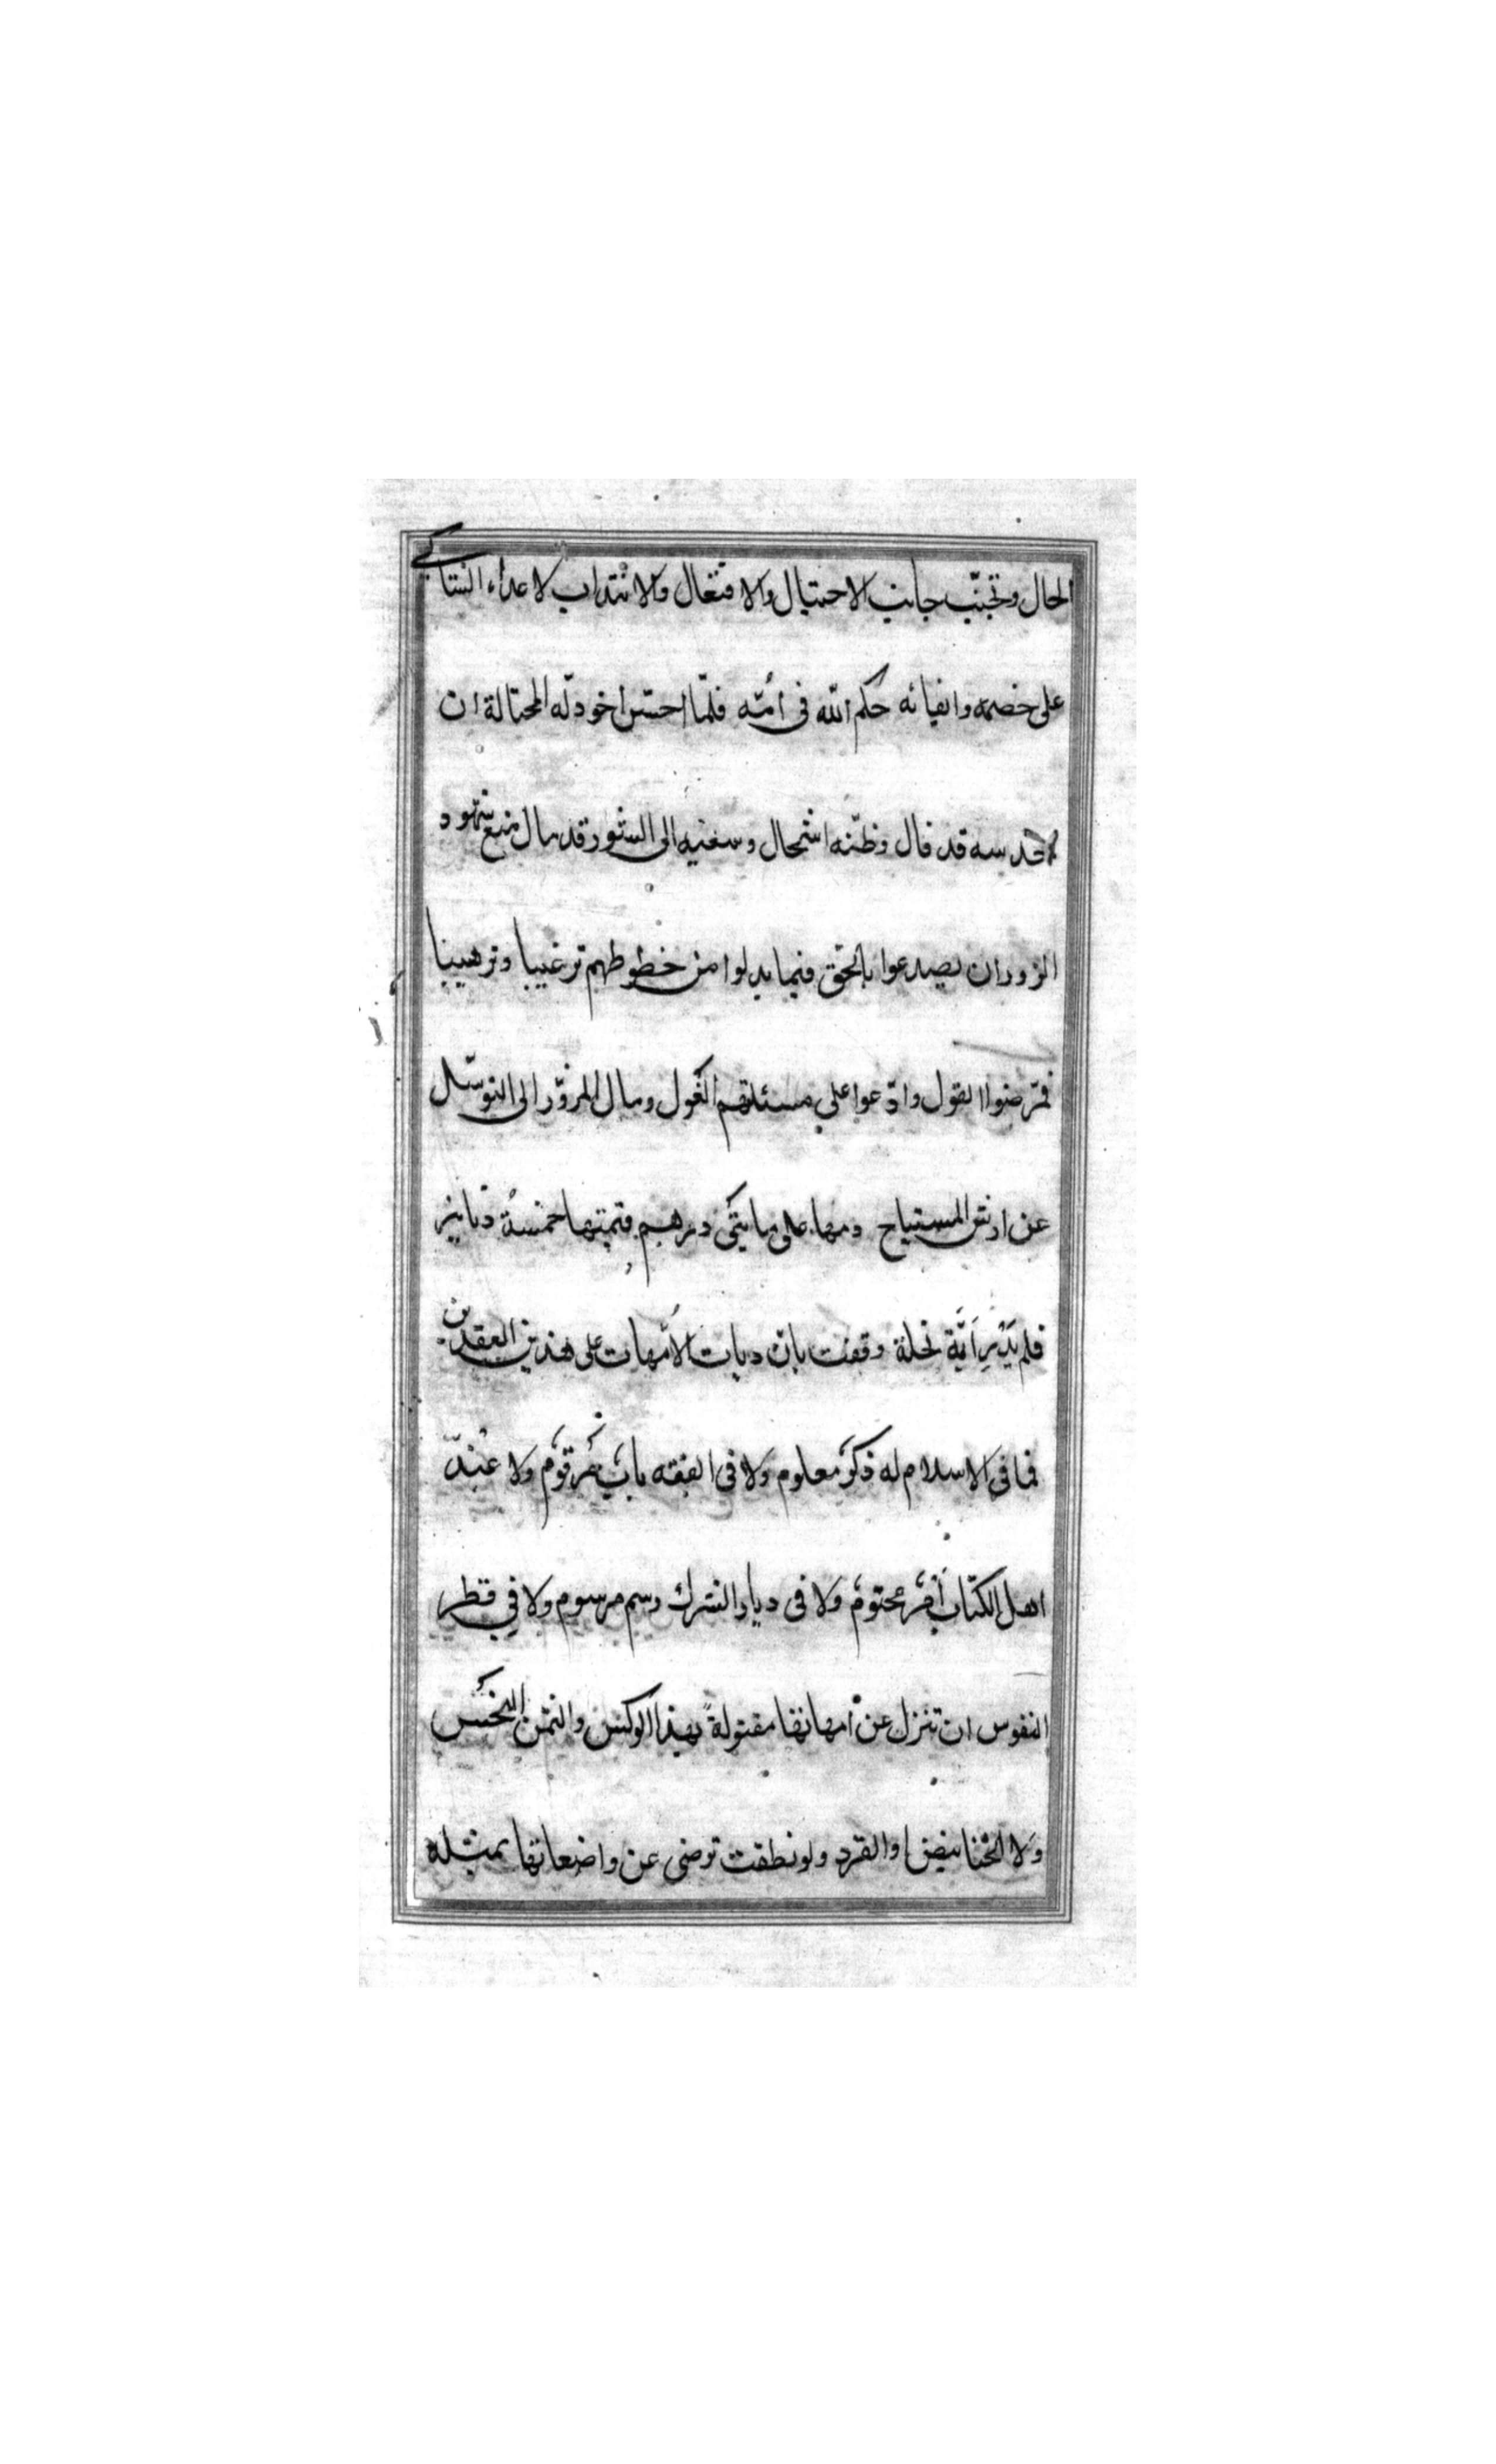 الحال وتجنّب جانب الاحتيال والافتعال والانتداب لاعداء الشاكي
على خصمه وايفائه حكم الله في أمّته فلمّا احسّ اخو دلّه المحتالة ان
حدسه قد فال وظنّه استحال وسعيه الى الثور قد مال منع شهود
الزوران يصدعوا بالحقّ فيما بدلوا من خطوطهم ترغيبا وترهيبا
فمرّضوا القول وادّعوا على مسئلتهم العول ومال المزوّر الى التوسّل
عن ارش المستباح دمها على مايتى درهم قيمتها خمسة دنانير
فلم يَدْرِ أيّة نحلة وقفت بانّ ديات الامّهات على هذين العقدين
فما فى الاسلام له ذكر معلوم ولا فى الفقه باب مرقوم ولا عند
اهل الكتاب أمر محتوم ولا فى ديار الشرك رسم مرسوم ولا في فطر
النفوس ان تنزل عن أمهاتها مقتولةً بهذا الوكس والثمن البخس
ولا الخنانيص والقرد ولو نطقت ترضى عن واضعاتها بمثله